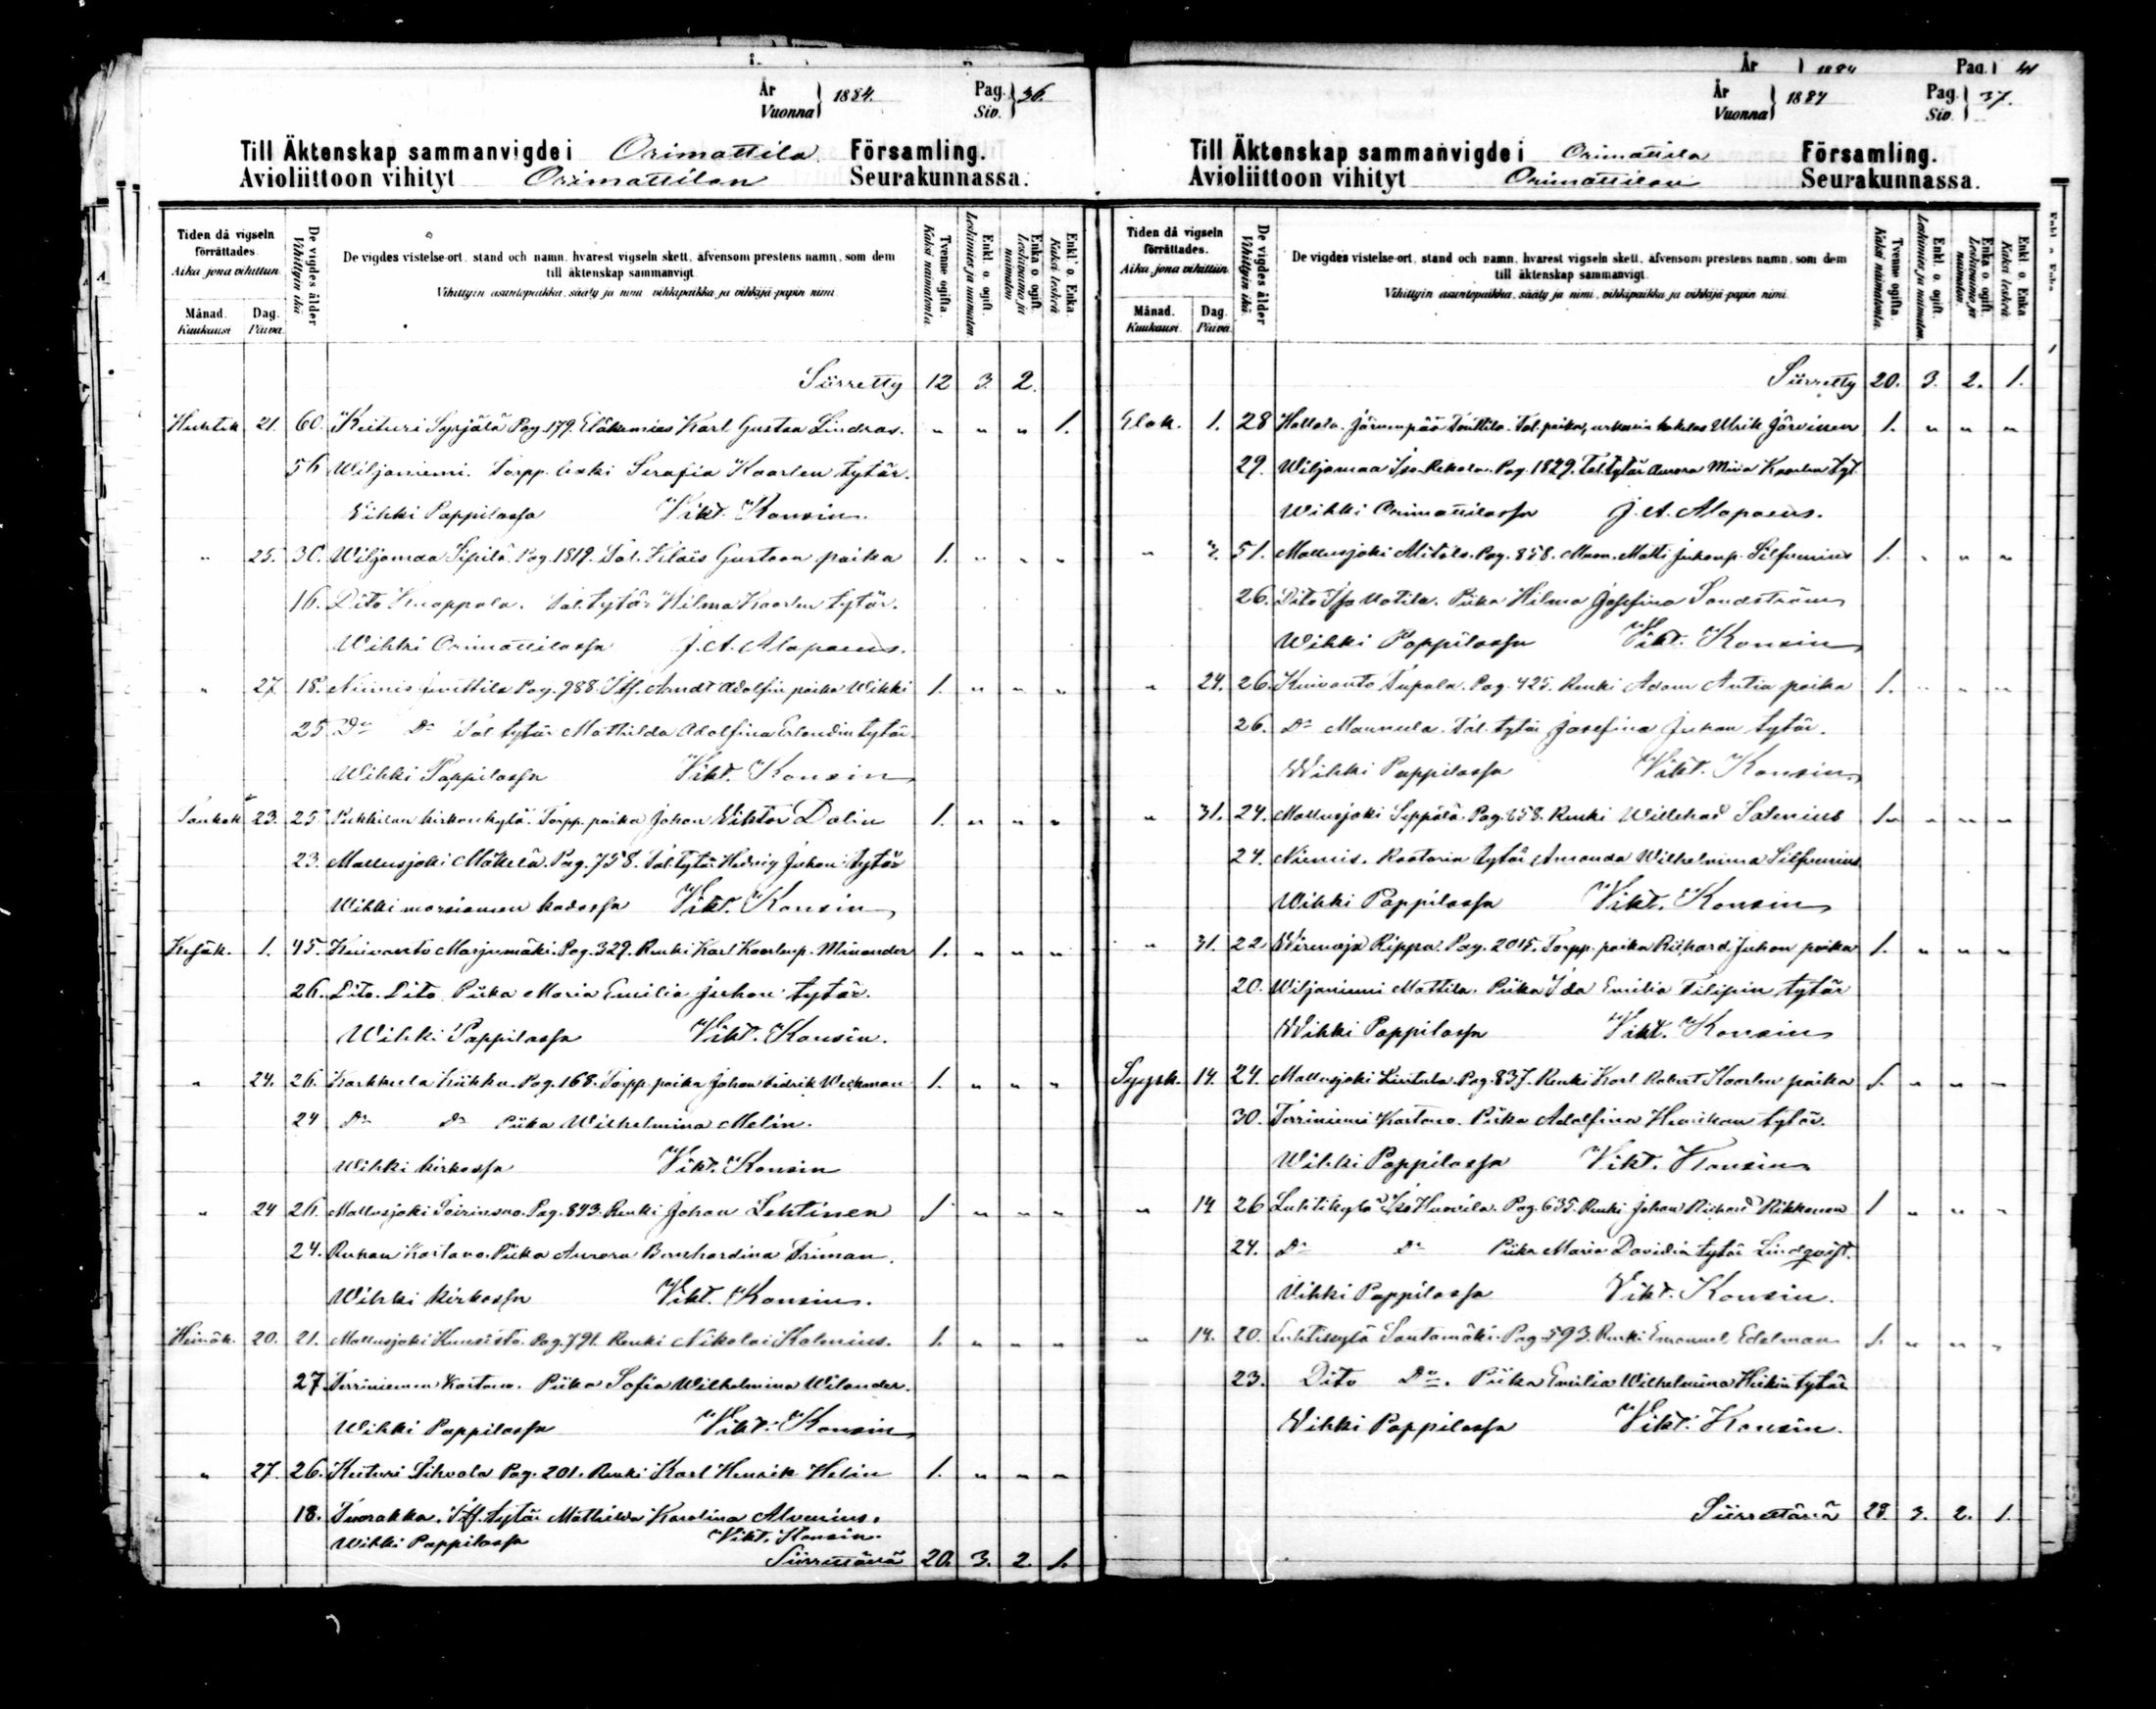 År Vuonna } 1884. Pag. Siv. } 36.
Till Äktenskap sammanvigde i Orimattila Församling.
Avioliittoon vihityt Orimattilan Seurakunnassa.
Tiden då vigseln förrättades.
Aika jona vihittiin
Månad. Kuukausi
Dag. Päivä.
De vigdes ålder
Vihittyin ikä
De vigdes vistelse-ort, stand och namn, hvarest vigseln skett, äfvensom prestens namn, som dem
till äktenskap sammanvigt.
Vihittyin asuntopaikka, sääty ja nimi, vihkipaikka ja vihkijä-papin nimi.
Tvenne ogifta. Kaksi naimatonta.
Enkl. o. ogift. Leskimies ja naimaton.
Enka o. ogift. Leskivaimo ja naimaton
Enkl. o. Enka. Kaksi leskeä
Siirretty 12 3. 2.
Huhtik 21. 60. Keituri Syrjälä Pag. 179. Eläkemies Karl Gustaa Lindras. " " " 1.
56 Wiljaniemi. Torpp. leski Serafia Kaarlen tytär.
Vihki Pappilassa Vikt. Konsin.
" 25. 30. Wiljamaa Sipilä. Pag. 1819. Tal. Klais Gustaan poika 1. " " "
16. Dito Knaappala. Tal. tytär Hilma Kaarlen tytär.
Wihki Orimattilassa J. A. Alopaeus.
" 27. 18. Niemis Pag. 988. Itf. Arndt Adolfin poika Wikki 1. " " "
25 Do Do Tal tytär Mathilda Adolfina Erlandin tytär.
Wihki Pappilassa Vikt. Konsin
Toukok 23. 25. Pukkilan kirkonkylä. Torpp. poika Johan Viktor Dalin 1. " " "
23. Mallusjoki Mäkelä. Pag. 758. Tal. tytär Hedvig Juhan tytär
Wihki morsiamen kodossa Vikt. Konsin
Kesäk. 1. 45. Kuivanto Marjamäki. Pag. 329. Renki Karl Kaarlenp. Minander 1. " " "
26. Dito. Dito Piika Maria Emilia Juhan tytär.
Wihki Pappilassa Vikt. Konsin.
" 24. 26. Karkkula Kukku. Pag. 168. Torpp. poika Johan Fridrik Weckman 1. " " "
24 Do Do Piika Wilhelmina Melin.
Wihki kirkossa Vikt. Konsin
" 24 26. Mallusjoki Pag. 843. Renki Johan Lehtinen 1. " " "
24. Ruhan Kartano. Piika Aurora Bernhardina Friman.
Wihki kirkossa Vikt. Konsin.
Heinäk. 20. 21. Mallusjoki Kuusisto. Pag. 791. Renki Nikolai Kalenius. 1. " " "
27. Terriniemen Kartano. Piika Sofia Wilhelmina Wilander.
Wihki Pappilassa Vikt. Konsin
" 27. 26. Keituri Sihvola Pag. 201. Renki Karl Henrik Helin 1. " " "
18. Tuorakka. Itf. tytär Mathilda Karolina Alvenius.
Wihki Pappilassa Vikt. Konsin.
Siirrettävä 20. 3. 2. 1.
År 1884 Pag.
År Vuonna } 1884 Pag. Siv. } 37.
Till Äktenskap sammanvigde i Orimattila Församling.
Avioliittoon vihityt Orimattilan Seurakunnassa.
Tiden då vigseln förrättades.
Aika jona vihittiin
Månad. Kuukausi.
Dag. Päivä.
De vigdes ålder
Vihittyin ikä
De vigdes vistelse-ort, stand och namn, hvarest vigseln skett, äfvensom prestens namn, som dem
till äktenskap sammanvigt.
Vihittyin asuntopaikka, sääty ja nimi, vihkipaikka ja vihkijä-papin nimi.
Tvenne ogifta. Kaksi naimatonta.
Enkl. o. ogift. Leskimies ja naimaton.
Enka o. ogift. Leskivaimo ja naimaton
Enkl. o. Enka Kaksi leskeä
Siirretty 20. 3. 2. 1.
Elok. 1. 28 Hollola. Järvenpää Tal. poika, Ulrik Järvinen 1. " " "
29. Wiljamaa Iso-Rekola. Pag. 1829. Tal. tytär Aurora Miina Kaarlen tyt.
Wihki Orimattilassa J. A. Alopaeus.
" 51. Mallusjoki Alitalo. Pag. 858. Matti Juhanp. Silfvenius 1. " " "
26. Dito Iso Uotila. Piika Hilma Josefina Sandström
Wihki Pappilassa Vikt. Konsin
" 24. 26. Kuivanto Tupala. Pag. 425. Renki Adam Antin poika 1. " " "
26. Do Mannula. Tal. tytär Josefina Juhan tytär.
Wihki Pappilassa Vikt. Konsin
" 31. 24. Mallusjoki Seppälä. Pag. 858. Renki Willehad Salenius 1. " " "
24. Niemis. Raatarin tytär Amanda Wilhelmina Silfvenius
Wihki Pappilassa Vikt. Konsin
" 31. 22 Virenoja Rippa. Pag. 2015. Torpp. poika Rikhard Juhan poika 1. " " "
20. Wiljaniemi Mattila. Piika Ida Emilia Filipin tytär
Wihki Pappilassa Vikt. Konsin
Syysk. 14. 24. Mallusjoki Lintula. Pag. 837. Renki Karl Robert Kaarlen poika 1. " " "
30. Terriniemi Kartano. Piika Adolfina Henrikan tytär.
Wihki Pappilassa Vikt. Konsin
" 14 26 Luhtikylä Iso Huovila. Pag. 635. Renki Johan Richard Rikkonen 1 " " "
24. Do Do Piika Maria Davidin tytär Lindqvist.
Vihki Pappilassa Vikt. Konsin.
" 14. 20. Luhtikylä Santamäki. Pag. 593. Renki Emanuel Edelman 1. " " "
23. Dito Do. Piika Emilia Wilhelmina Heikin tytär
Wihki Pappilassa Vikt. Konsin.
Siirrettävä 28 3. 2. 1.